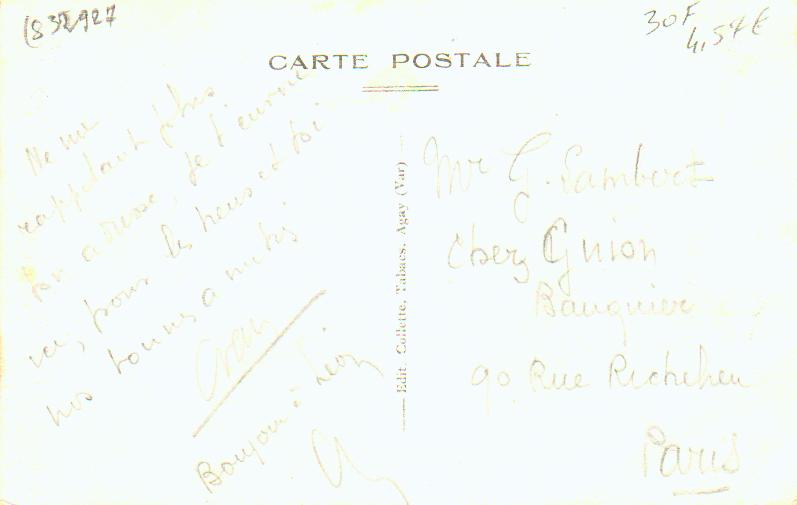 30F
4,57€
CARTE POSTALE
Ne me
rappelant plus
ton adresse, je t'envoie
ici, pour les tiens et toi
nos bonnes amitiés
Bonjour à Léon
Edit. Collette, Tabacs, Agay (Var)
Mr G. Lambert
chez Guion
Banquier
90 Rue Richelieu
Paris